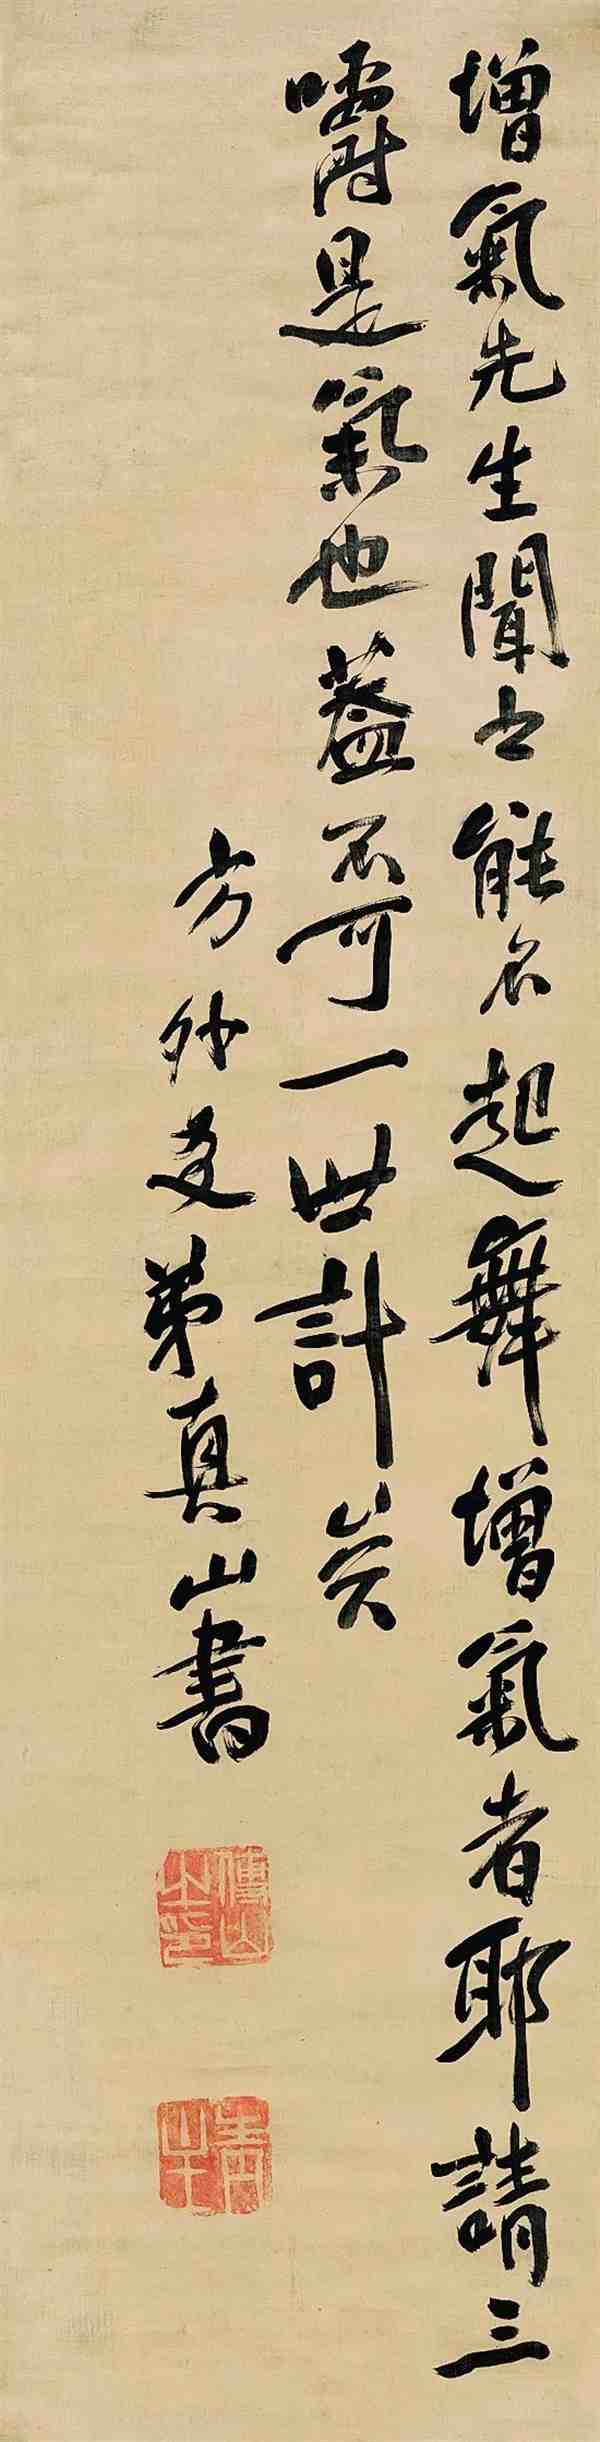 增氣先生聞之能不起舞增氣者耶請三
嚼是氣也蓋不可一世計矣
方外友弟真山書
傅山之印